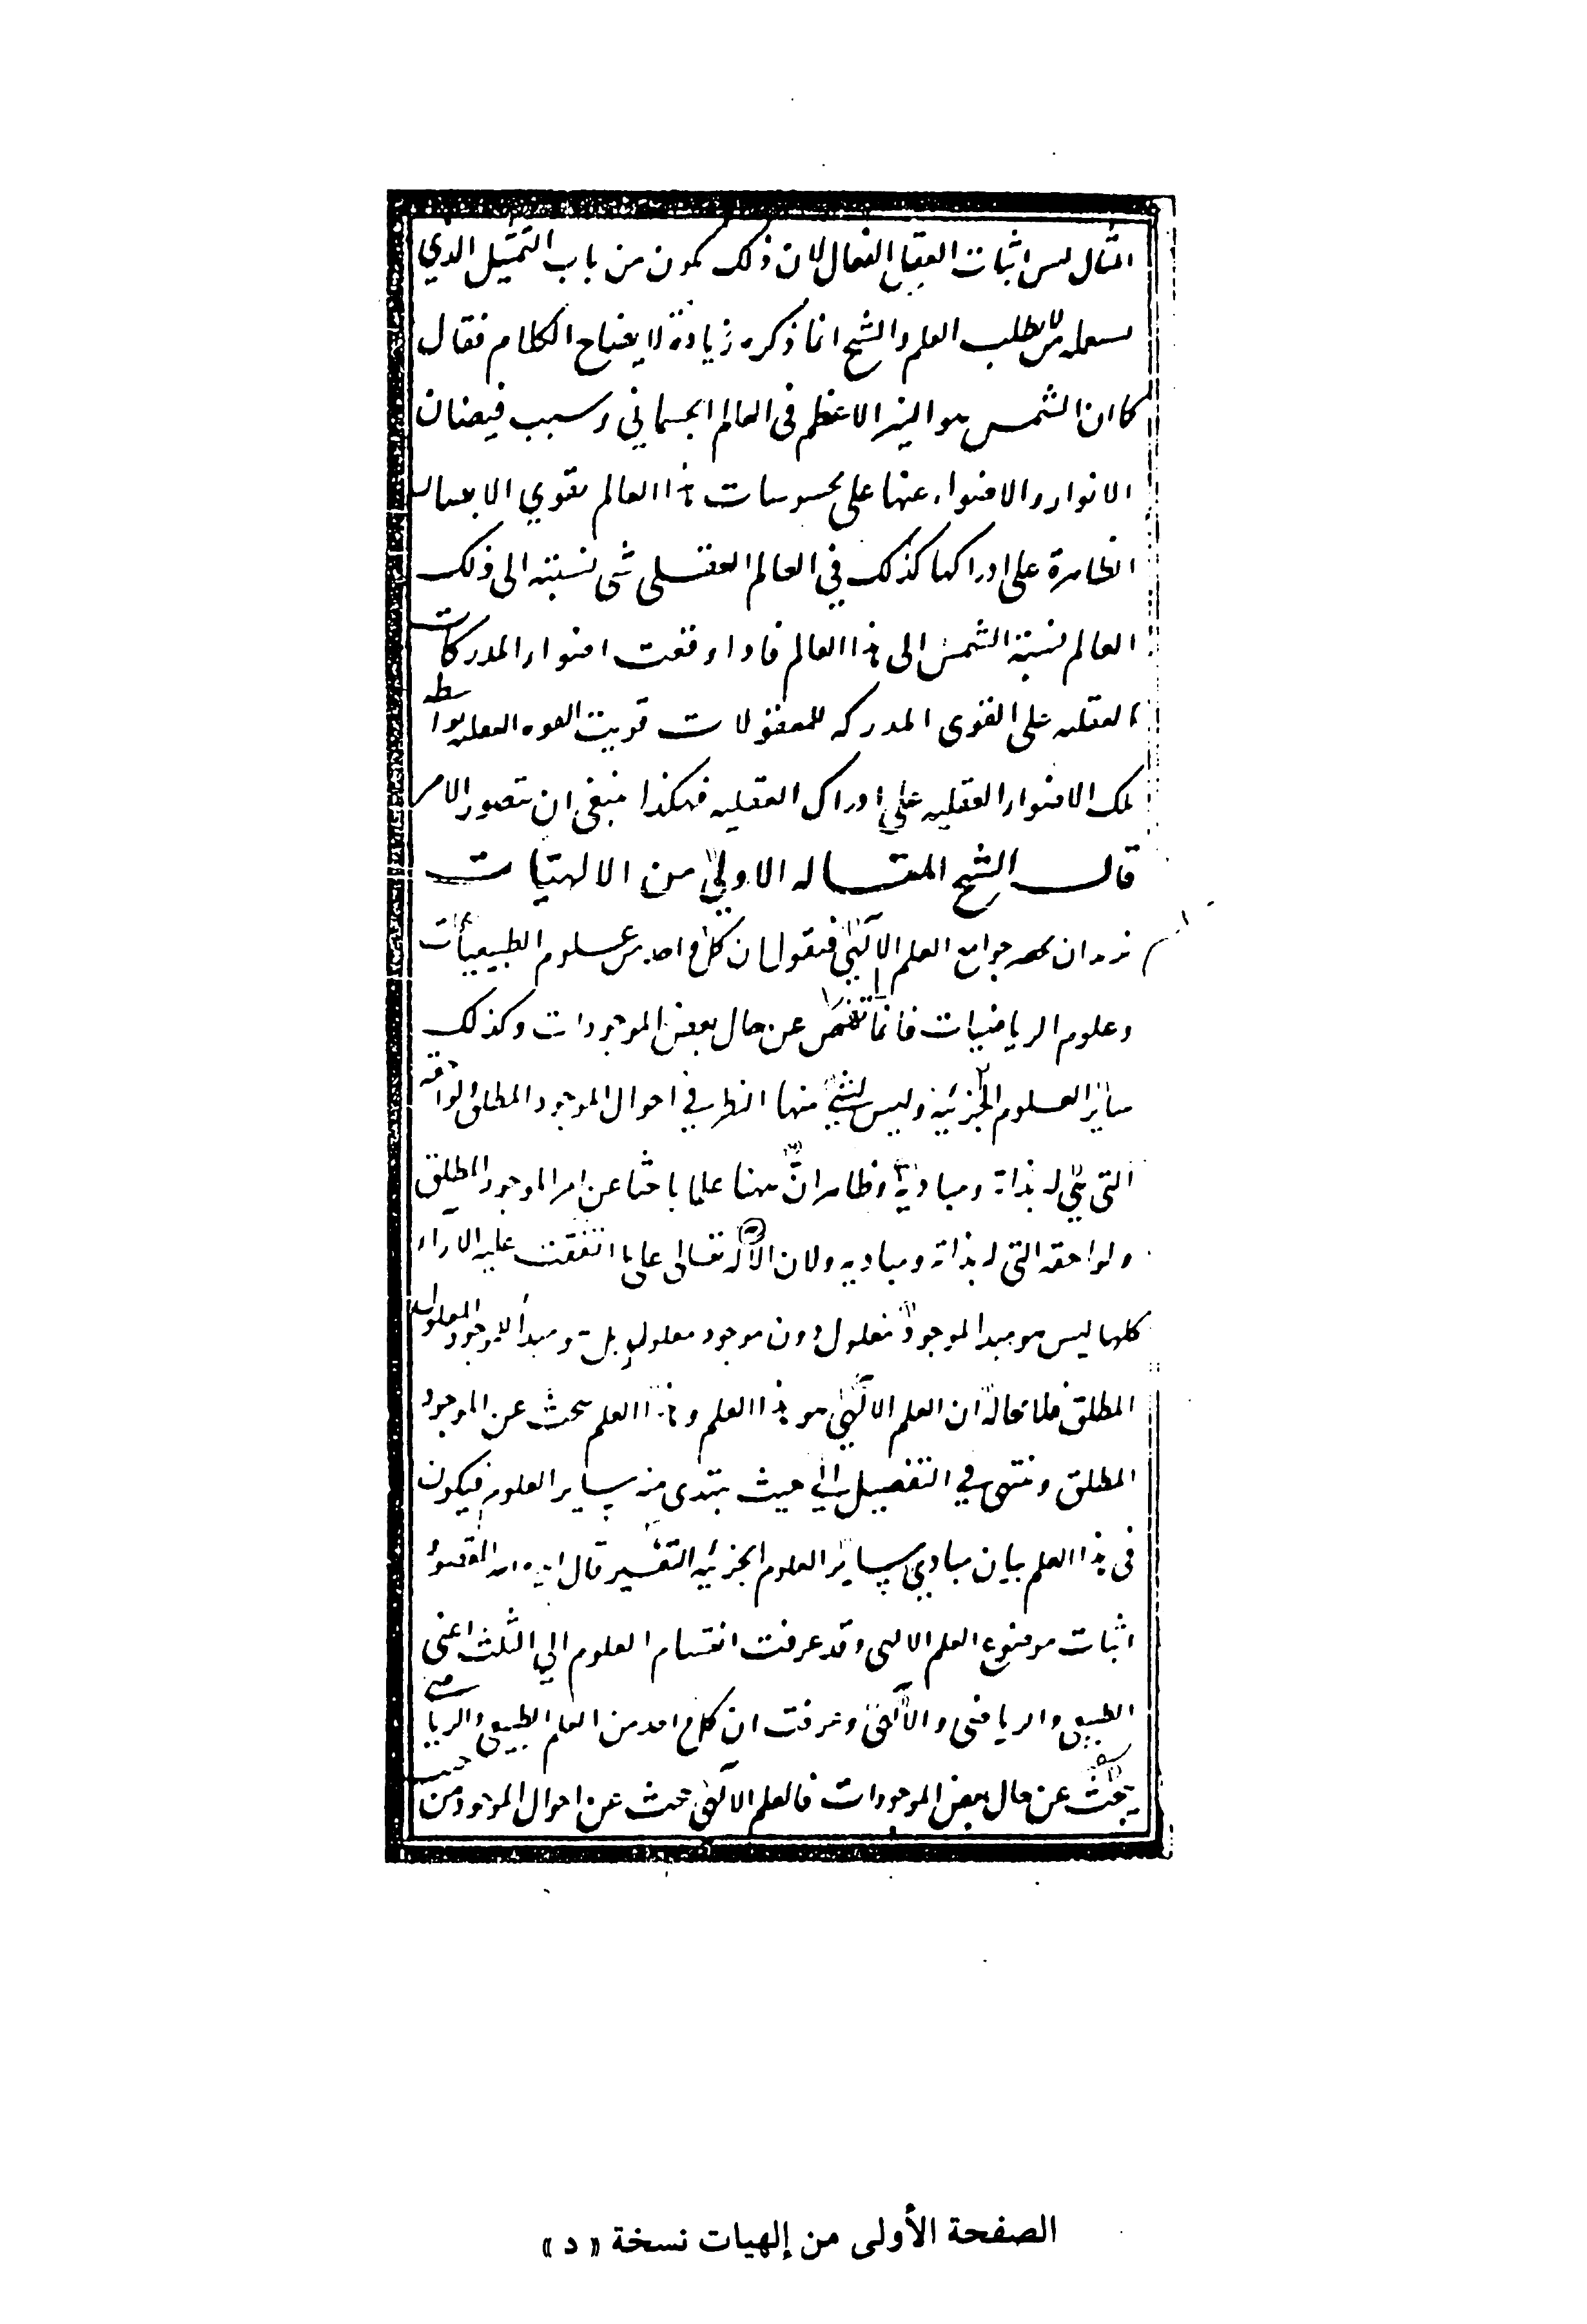 المثال ليس اثبات العقل الفعال لان ذلك يكون من باب التمثيل الذي
يستعمله من لا يطلب العلم والشيخ انما ذكره زيادة لايضاح الكلام فقال
كما ان الشمس هو النير الاعظم في العالم الجسماني وسبب فيضان
الانوار والاضواء عنها على محسوسات هذا العالم يقوي الابصار
الظاهرة على ادراكها كذلك في العالم العقلي شي نسبته الى ذلك
العالم نسبة الشمس الى هذا العالم فاذا وقعت اضواء المدركات
العقليه على القوى المدركه للمعقولات قويت القوه العقليه بواسطه
تلك الاضواء العقليه على ادراك العقليه فهكذا ينبغي ان يتصور الامر
قال الشيخ المقاله الاولى من الالهيات
نريد ان نحصر جوامع العلم الآلهي فنقول ان كل واحد من علوم الطبيعيات
وعلوم الرياضيات فانما تفحص عن حال بعض الموجودات وكذلك
ساير العلوم الجزئية وليس لشي منها النظر في احوال الموجود المطلق ولواحقه
التي هي له بذاته ومباديه وظاهر انّ ههنا علما باحثا عن امر الموجود المطلق
ولواحقه التي له بذاته ومباديه ولان الآله تعالى على ما اتفقت عليه الاراء
كلها ليس هو مبدا لموجود معلول دون موجود معلول بل هو مبدأ للوجود المعلول
المطلق فلا محالة ان العلم الآلهي هو هذا العلم وهذا العلم يبحث عن الموجود
المطلق وينتهي في التفصيل الى حيث يبتدى منه ساير العلوم فيكون
في هذا العلم بيان مبادي ساير العلوم الجزئيه التفسير قال ايده الله المقصود
اثبات موضوع العلم الالهي وقد عرفت انقسام العلوم الي الثلث اعني
الطبيعي والرياضي والآلهي وعرفت ان كل واحد من العلم الطبيعي والرياضي
يبحث عن حال بعض الموجودات فالعلم الآلهي يبحث عن احوال الموجود من حيث
الصفحة الأولى من إلهيات نسخة « د »